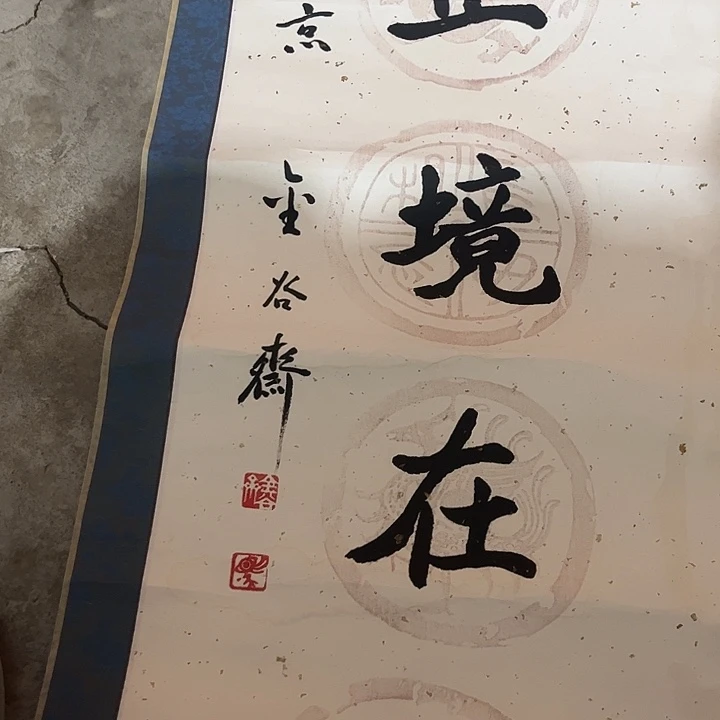 境在
京金谷斋